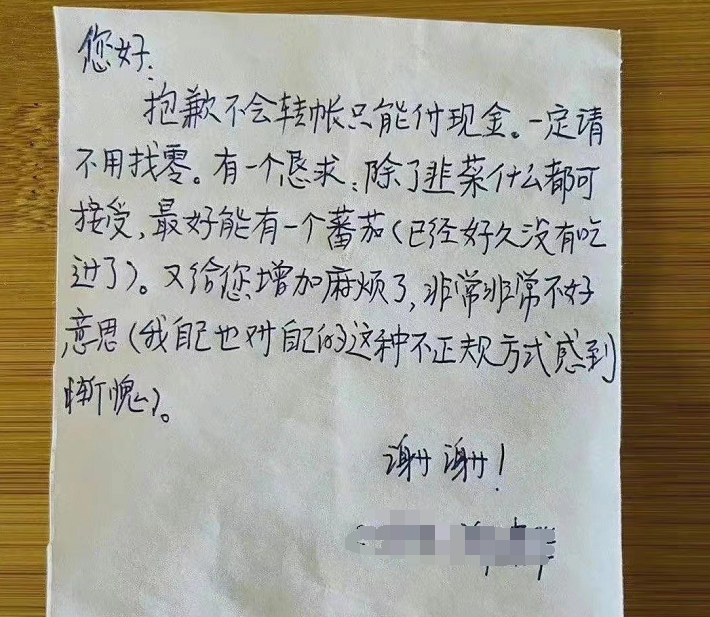 您好:
抱歉不会转帐只能付现金。一定请
不用找零。有一个恳求:除了韭菜什么都可
接受,最好能有一个蕃茄(已经好久没有吃
进了)。又给您增加麻烦了,非常非常不好
意思(我自己也对自己的这种不正规方式感到
惭愧)。
谢谢!